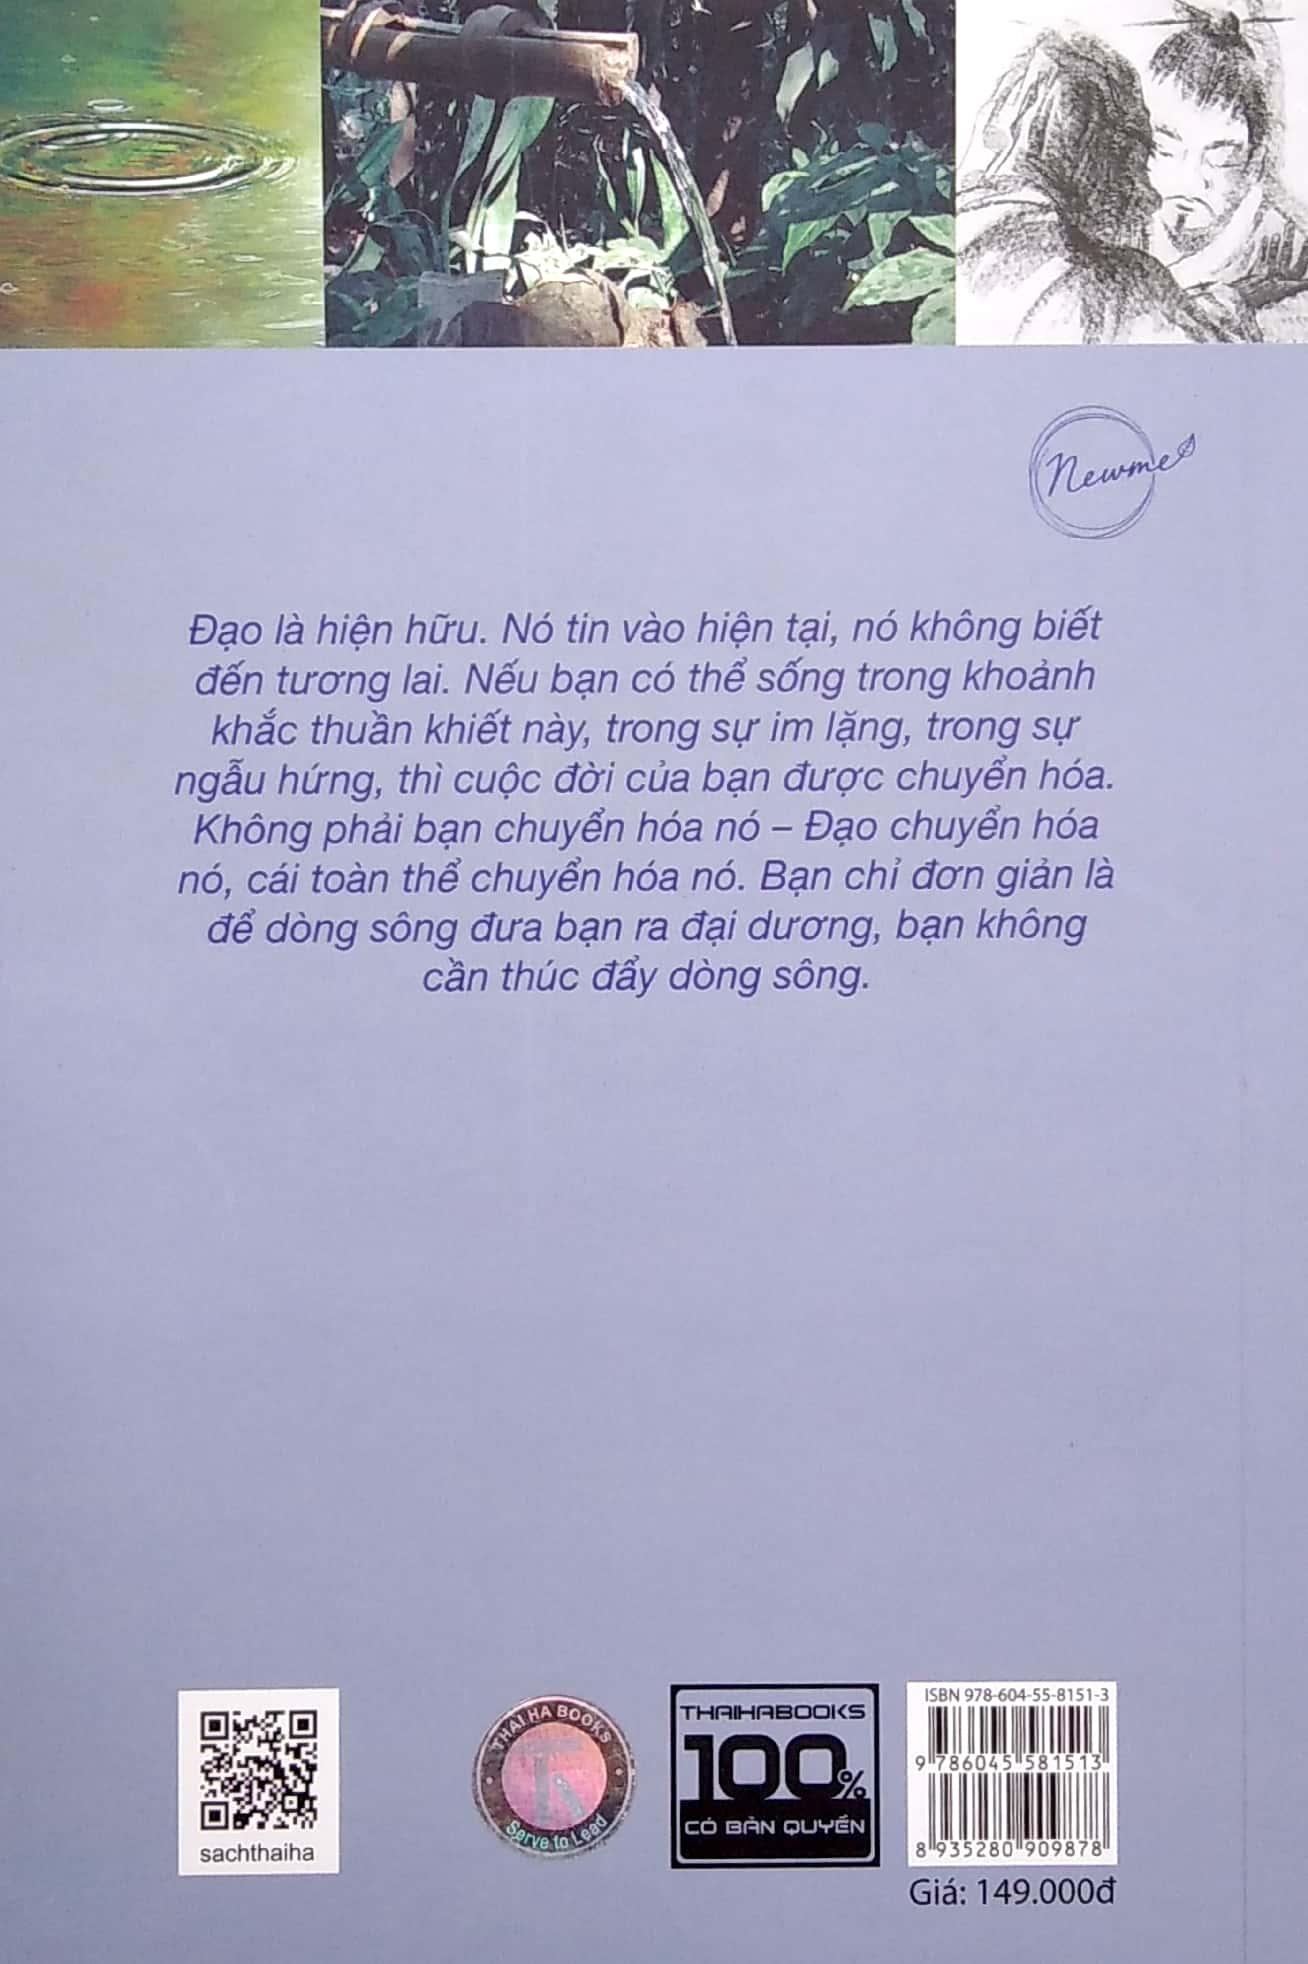 Newme
Đạo là hiện hữu. Nó tin vào hiện tại, nó không biết
đến tương lai. Nếu bạn có thể sống trong khoảnh
khắc thuần khiết này, trong sự im lặng, trong sự
ngẫu hứng, thì cuộc đời của bạn được chuyển hóa.
Không phải bạn chuyển hóa nó – Đạo chuyển hóa
nó, cái toàn thể chuyển hóa nó. Bạn chỉ đơn giản là
để dòng sông đưa bạn ra đại dương, bạn không
cần thúc đẩy dòng sông.
sachthaiha
THAI HA BOOKS
Serve to Lead
THAIHABOOKS
100%
CÓ BẢN QUYỀN
ISBN 978-604-55-8151-3
9 786045 581513
8 935280 909878
Giá: 149.000đ